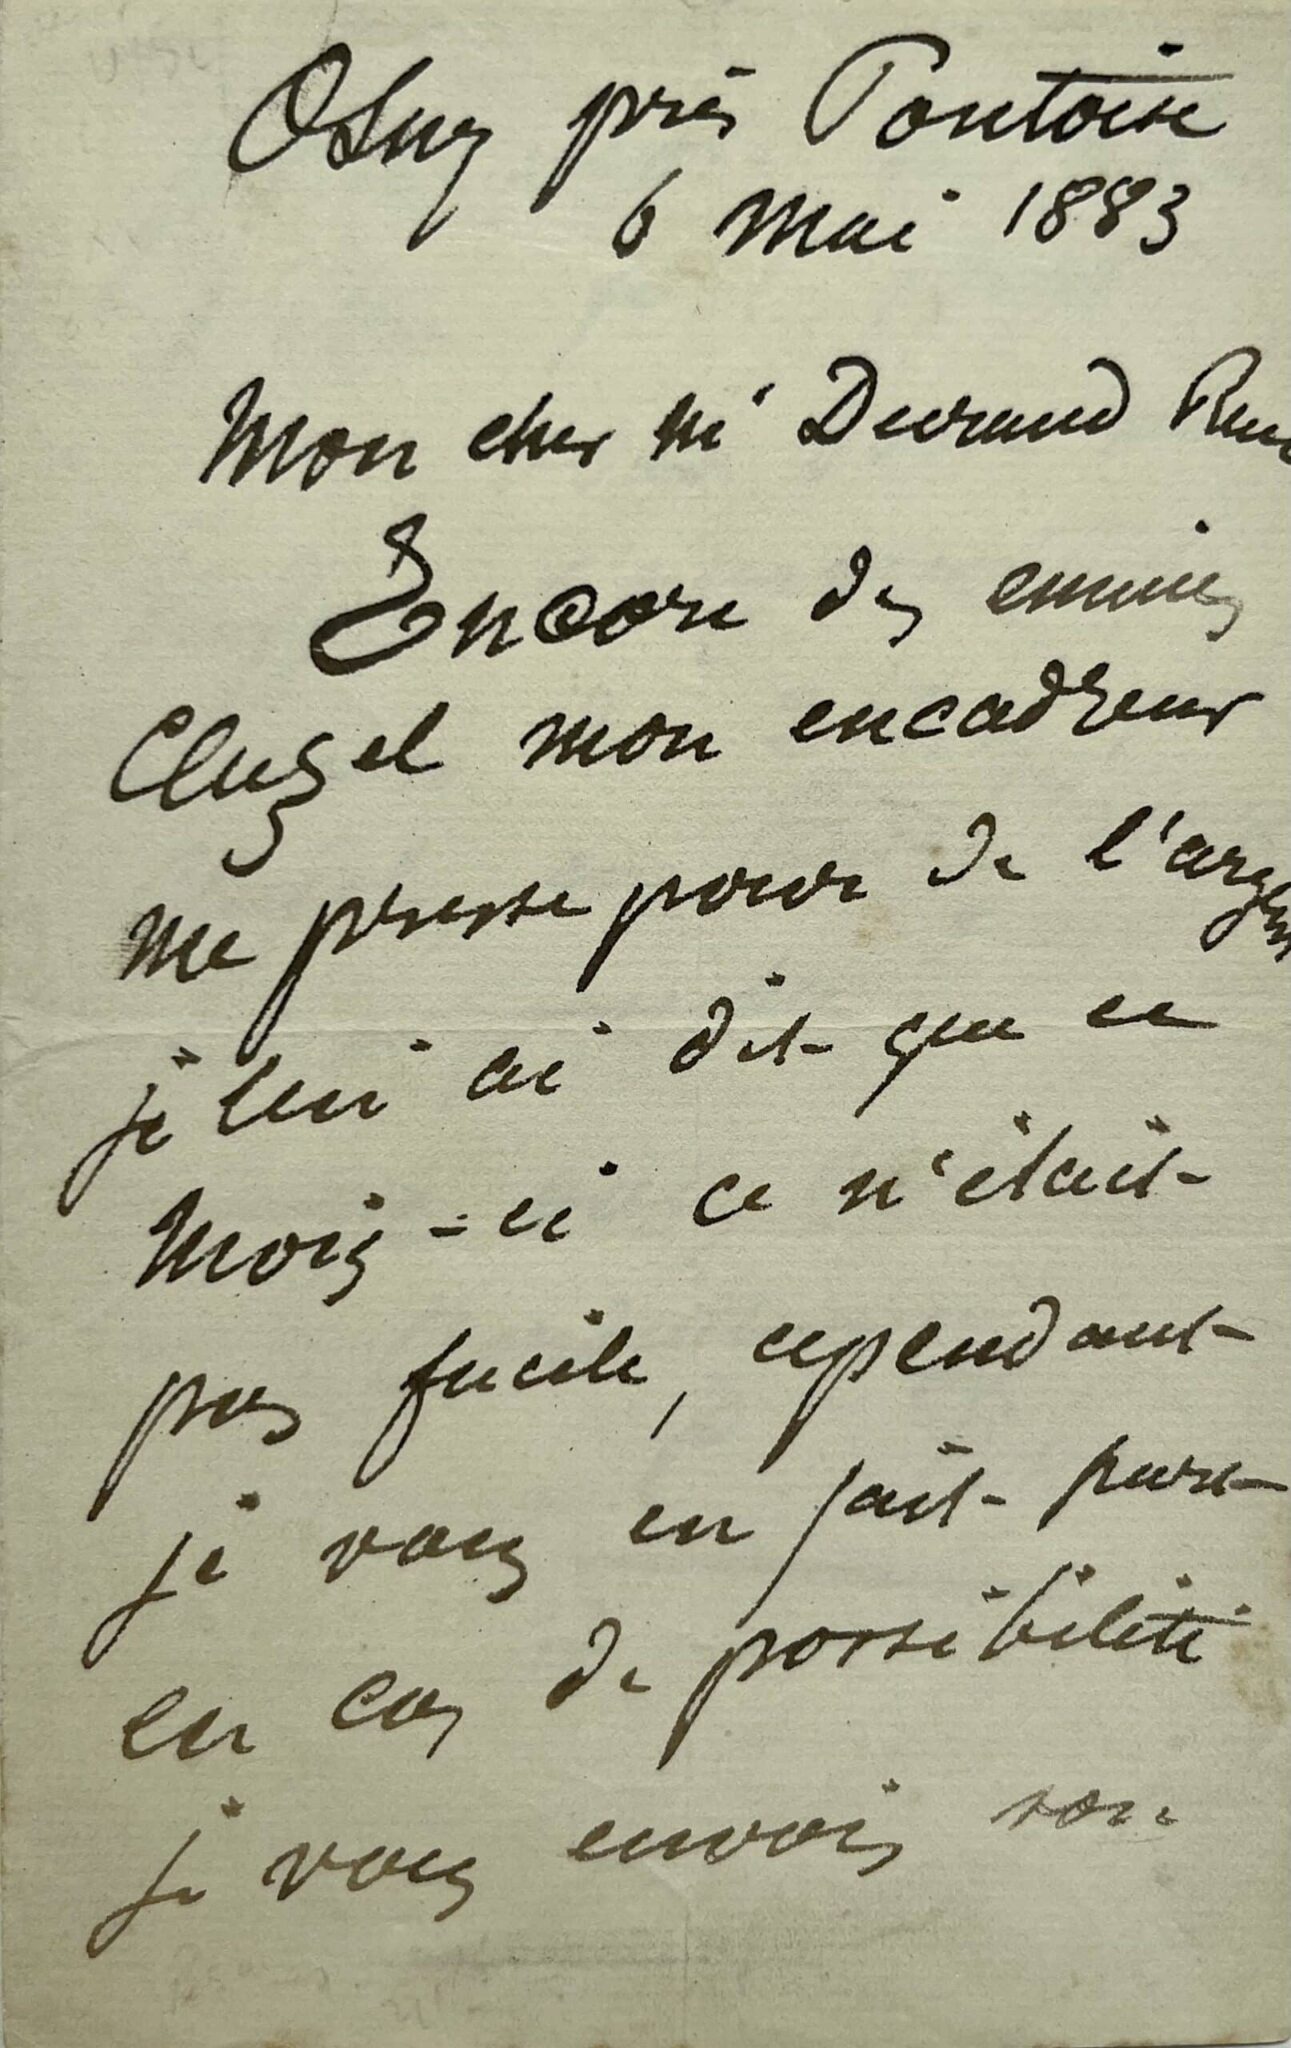 Osny près Pontoise
6 Mai 1883
Mon cher Mr Durand Rue
Encore des ennuis
Cluzel mon encadreur
me presse pour de l'argen
je lui ai dit que ce
mois-ci ce n'était
pas facile, cependant
je vous en fait part
en cas de possibilité
je vous envois son